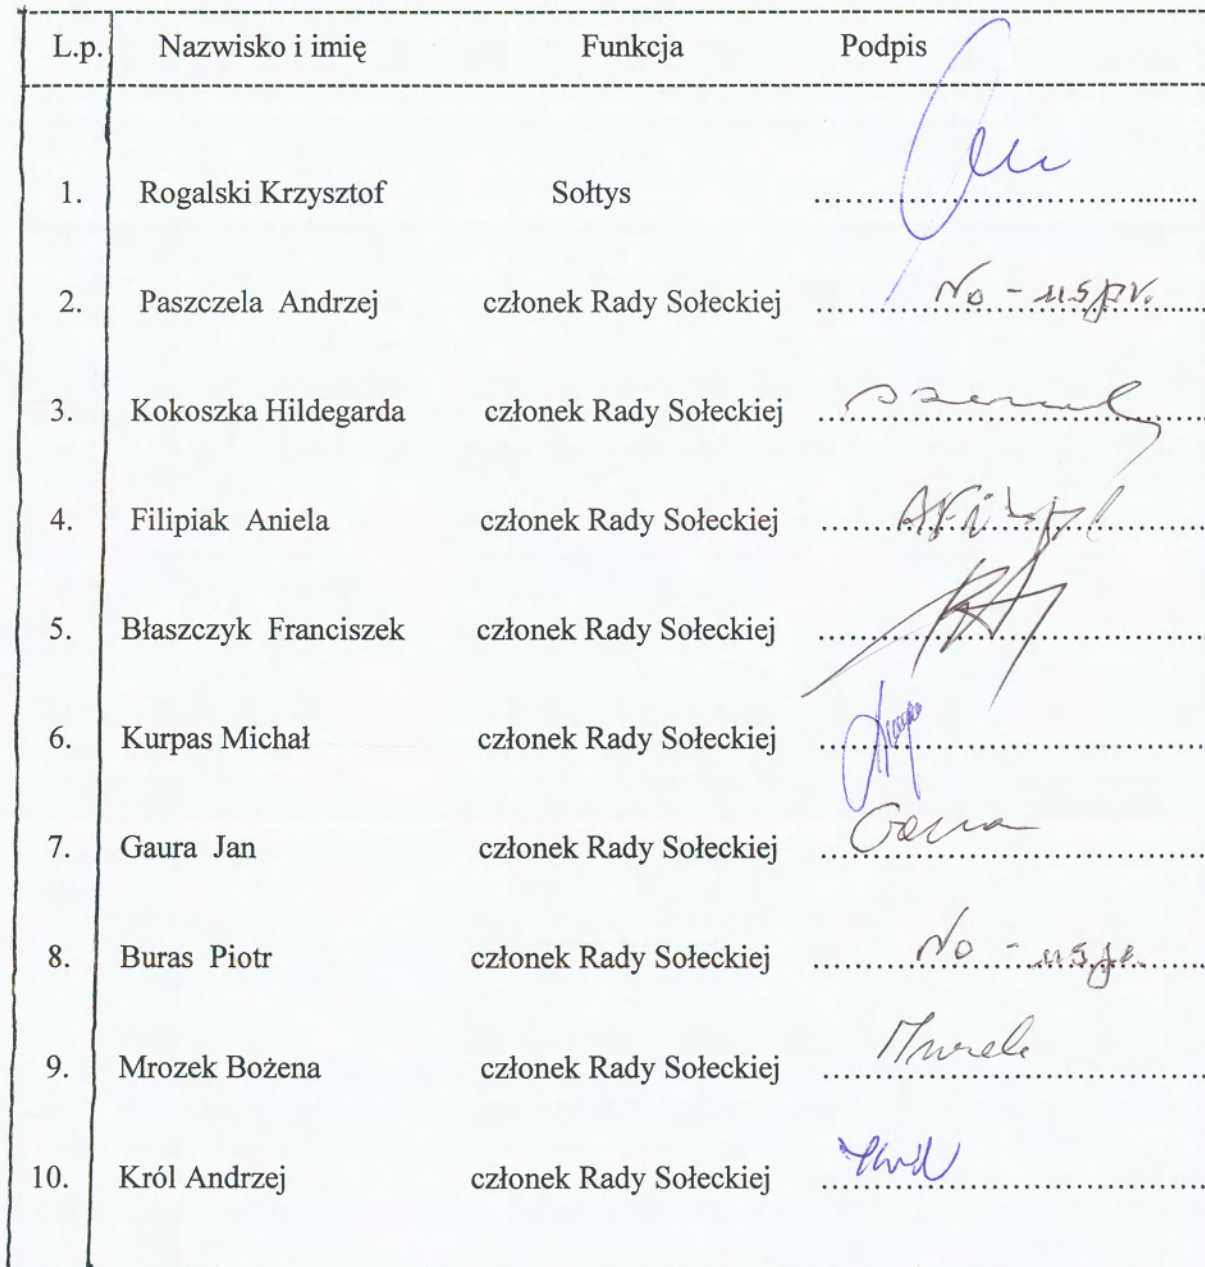 L.p. Nazwisko i imię Funkcja Podpis
1. Rogalski Krzysztof Sołtys
2. Paszczela Andrzej członek Rady Sołeckiej No - uspr.
3. Kokoszka Hildegarda członek Rady Sołeckiej
4. Filipiak Aniela członek Rady Sołeckiej
5. Błaszczyk Franciszek członek Rady Sołeckiej
6. Kurpas Michał członek Rady Sołeckiej
7. Gaura Jan członek Rady Sołeckiej Gaura
8. Buras Piotr członek Rady Sołeckiej No - uspr.
9. Mrozek Bożena członek Rady Sołeckiej
10. Król Andrzej członek Rady Sołeckiej